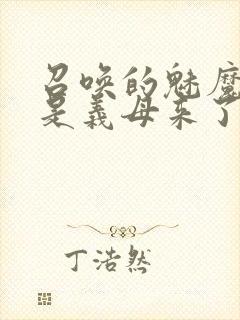 召唤的魅魔
是义母来了
丁浩然